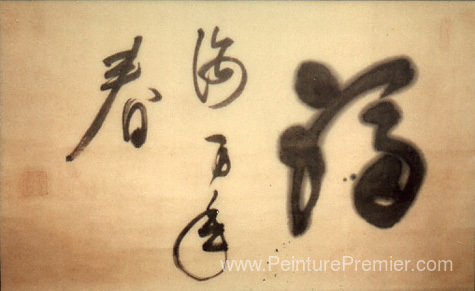 福
海万年
春
www.PeinturePremier.com